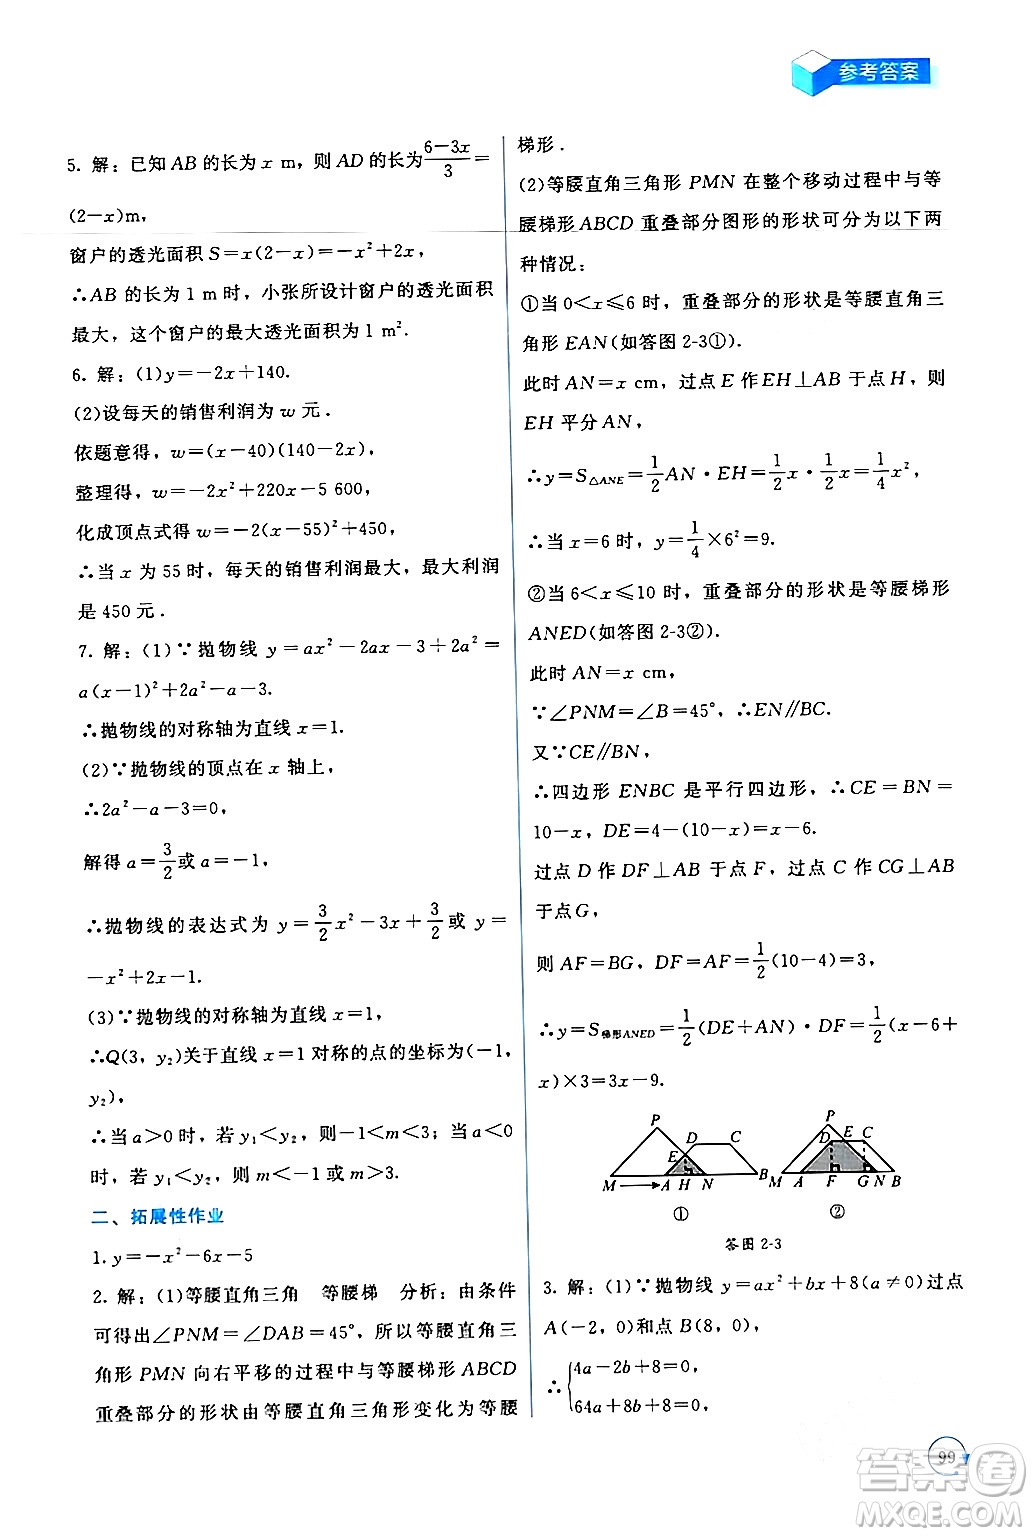 参考答案
5. 解：已知 AB 的长为 x m，则 AD 的长为 (6－3x)/3＝
(2－x)m，
窗户的透光面积 S＝x(2－x)＝－x²＋2x，
∴AB 的长为 1 m 时，小张所设计窗户的透光面积
最大，这个窗户的最大透光面积为 1 m².
6. 解：(1)y＝－2x＋140.
(2)设每天的销售利润为 w 元.
依题意得，w＝(x－40)(140－2x)，
整理得，w＝－2x²＋220x－5 600，
化成顶点式得 w＝－2(x－55)²＋450，
∴当 x 为 55 时，每天的销售利润最大，最大利润
是 450 元.
7. 解：(1)∵抛物线 y＝ax²－2ax－3＋2a²＝
a(x－1)²＋2a²－a－3.
∴抛物线的对称轴为直线 x＝1.
(2)∵抛物线的顶点在 x 轴上，
∴2a²－a－3＝0，
解得 a＝3/2 或 a＝－1，
∴抛物线的表达式为 y＝3/2x²－3x＋3/2 或 y＝
－x²＋2x－1.
(3)∵抛物线的对称轴为直线 x＝1，
∴Q(3，y₂)关于直线 x＝1 对称的点的坐标为(－1，
y₂)，
∴当 a＞0 时，若 y₁＜y₂，则－1＜m＜3；当 a＜0
时，若 y₁＜y₂，则 m＜－1 或 m＞3.
二、拓展性作业
1. y＝－x²－6x－5
2. 解：(1)等腰直角三角 等腰梯 分析：由条件
可得出∠PNM＝∠DAB＝45°，所以等腰直角三
角形 PMN 向右平移的过程中与等腰梯形 ABCD
重叠部分的形状由等腰直角三角形变化为等腰
梯形.
(2)等腰直角三角形 PMN 在整个移动过程中与等
腰梯形 ABCD 重叠部分图形的形状可分为以下两
种情况：
①当 0＜x≤6 时，重叠部分的形状是等腰直角三
角形 EAN(如答图 2-3①).
此时 AN＝x cm，过点 E 作 EH⊥AB 于点 H，则
EH 平分 AN，
∴y＝S△ANE＝1/2AN·EH＝1/2x·1/2x＝1/4x²，
∴当 x＝6 时，y＝1/4×6²＝9.
②当 6＜x≤10 时，重叠部分的形状是等腰梯形
ANED(如答图 2-3②).
此时 AN＝x cm，
∵∠PNM＝∠B＝45°，∴EN∥BC.
又∵CE∥BN，
∴四边形 ENBC 是平行四边形，∴CE＝BN＝
10－x，DE＝4－(10－x)＝x－6.
过点 D 作 DF⊥AB 于点 F，过点 C 作 CG⊥AB
于点G，
则 AF＝BG，DF＝AF＝1/2(10－4)＝3，
∴y＝S梯形ANED＝1/2(DE＋AN)·DF＝1/2(x－6＋
x)×3＝3x－9.
P D C E M A H N B
①
P D E C M A F G N B
②
答图 2-3
3. 解：(1)∵抛物线 y＝ax²＋bx＋8(a≠0)过点
A(－2，0)和点 B(8，0)，
∴{4a－2b＋8＝0，
64a＋8b＋8＝0，
99
答案圈
MXQE.COM